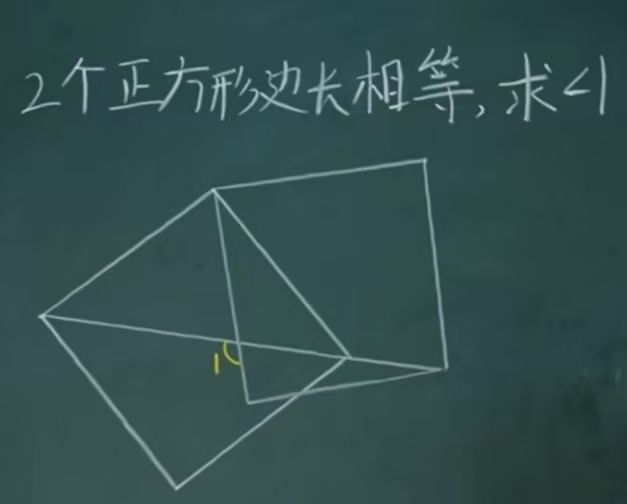 2个正方形边长相等,求<1
1